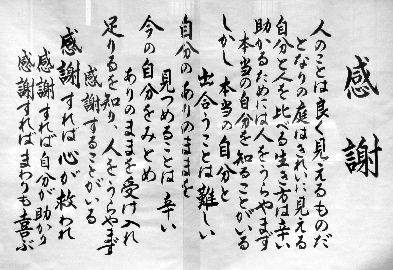 感謝
人のことは良く見えるものだ
となりの庭はきれいに見える
自分と人を比べる生き方は辛い
助かるためには人をうらやまず
本当の自分を知ることがいる
しかし本当の自分と
出合うことは難しい
自分のありのままを
見つめることは辛い
今の自分をみとめ
ありのままを受け入れ
足りるを知り、人をうらやまず
感謝することがいる
感謝すれば心が救われ
感謝すれば自分が助かり
感謝すればまわりも喜ぶ